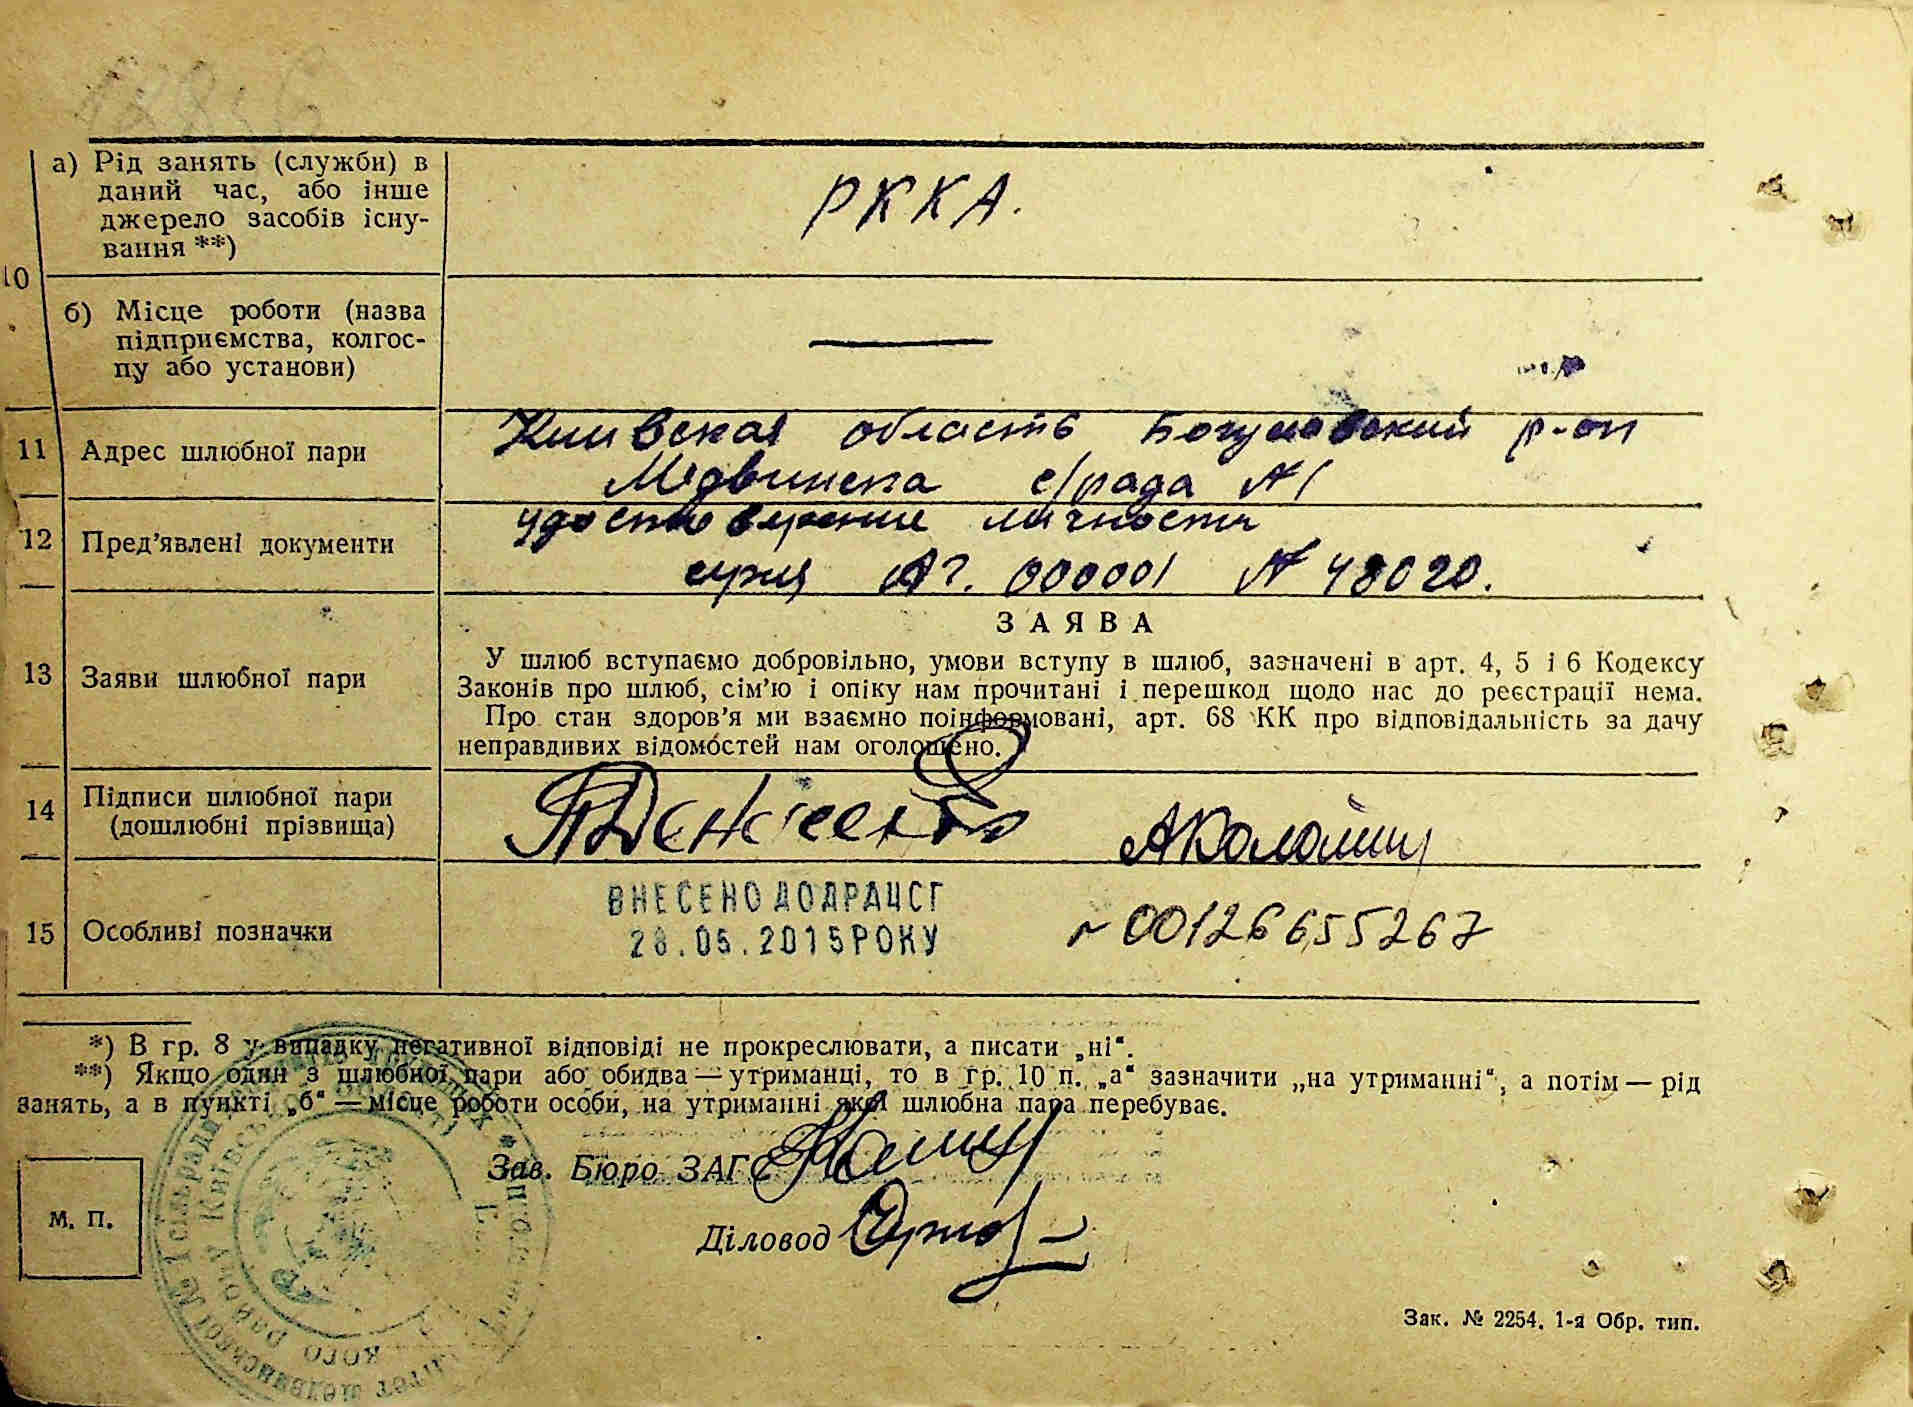 10
а) Рід занять (служби) в
даний час, або інше
джерело засобів існу-
вання **)
РККА.
б) Місце роботи (назва
підприємства, колгос-
пу або установи)
11
Адрес шлюбної пари
Киивская область Богуславский р-он
Медвинска с/рада №1
12
Пред’явлені документи
удостоверение личности
серия АГ. 000001 № 48020.
13
Заяви шлюбної пари
ЗАЯВА
У шлюб вступаємо добровільно, умови вступу в шлюб, зазначені в арт. 4, 5 і 6 Кодексу
Законів про шлюб, сім’ю і опіку нам прочитані і перешкод щодо нас до реєстрації нема.
Про стан здоров’я ми взаємно поінформовані, арт. 68 КК про відповідальність за дачу
неправдивих відомостей нам оголошено.
14
Підписи шлюбної пари
(дошлюбні прізвища)
15
Особливі позначки
ВНЕСЕНО ДО ДРАЦСГ
28.05.2015 РОКУ
№ 00126655267
*) В гр. 8 у випадку негативної відповіді не прокреслювати, а писати „ні“.
**) Якщо один з шлюбної пари або обидва — утриманці, то в гр. 10 п. „а“ зазначити „на утриманні“, а потім — рід
занять, а в пункті „б“ — місце роботи особи, на утриманні якої шлюбна пара перебуває.
Зав. Бюро ЗАГС
Діловод
М. П.
Зак. № 2254. 1-я Обр. тип.